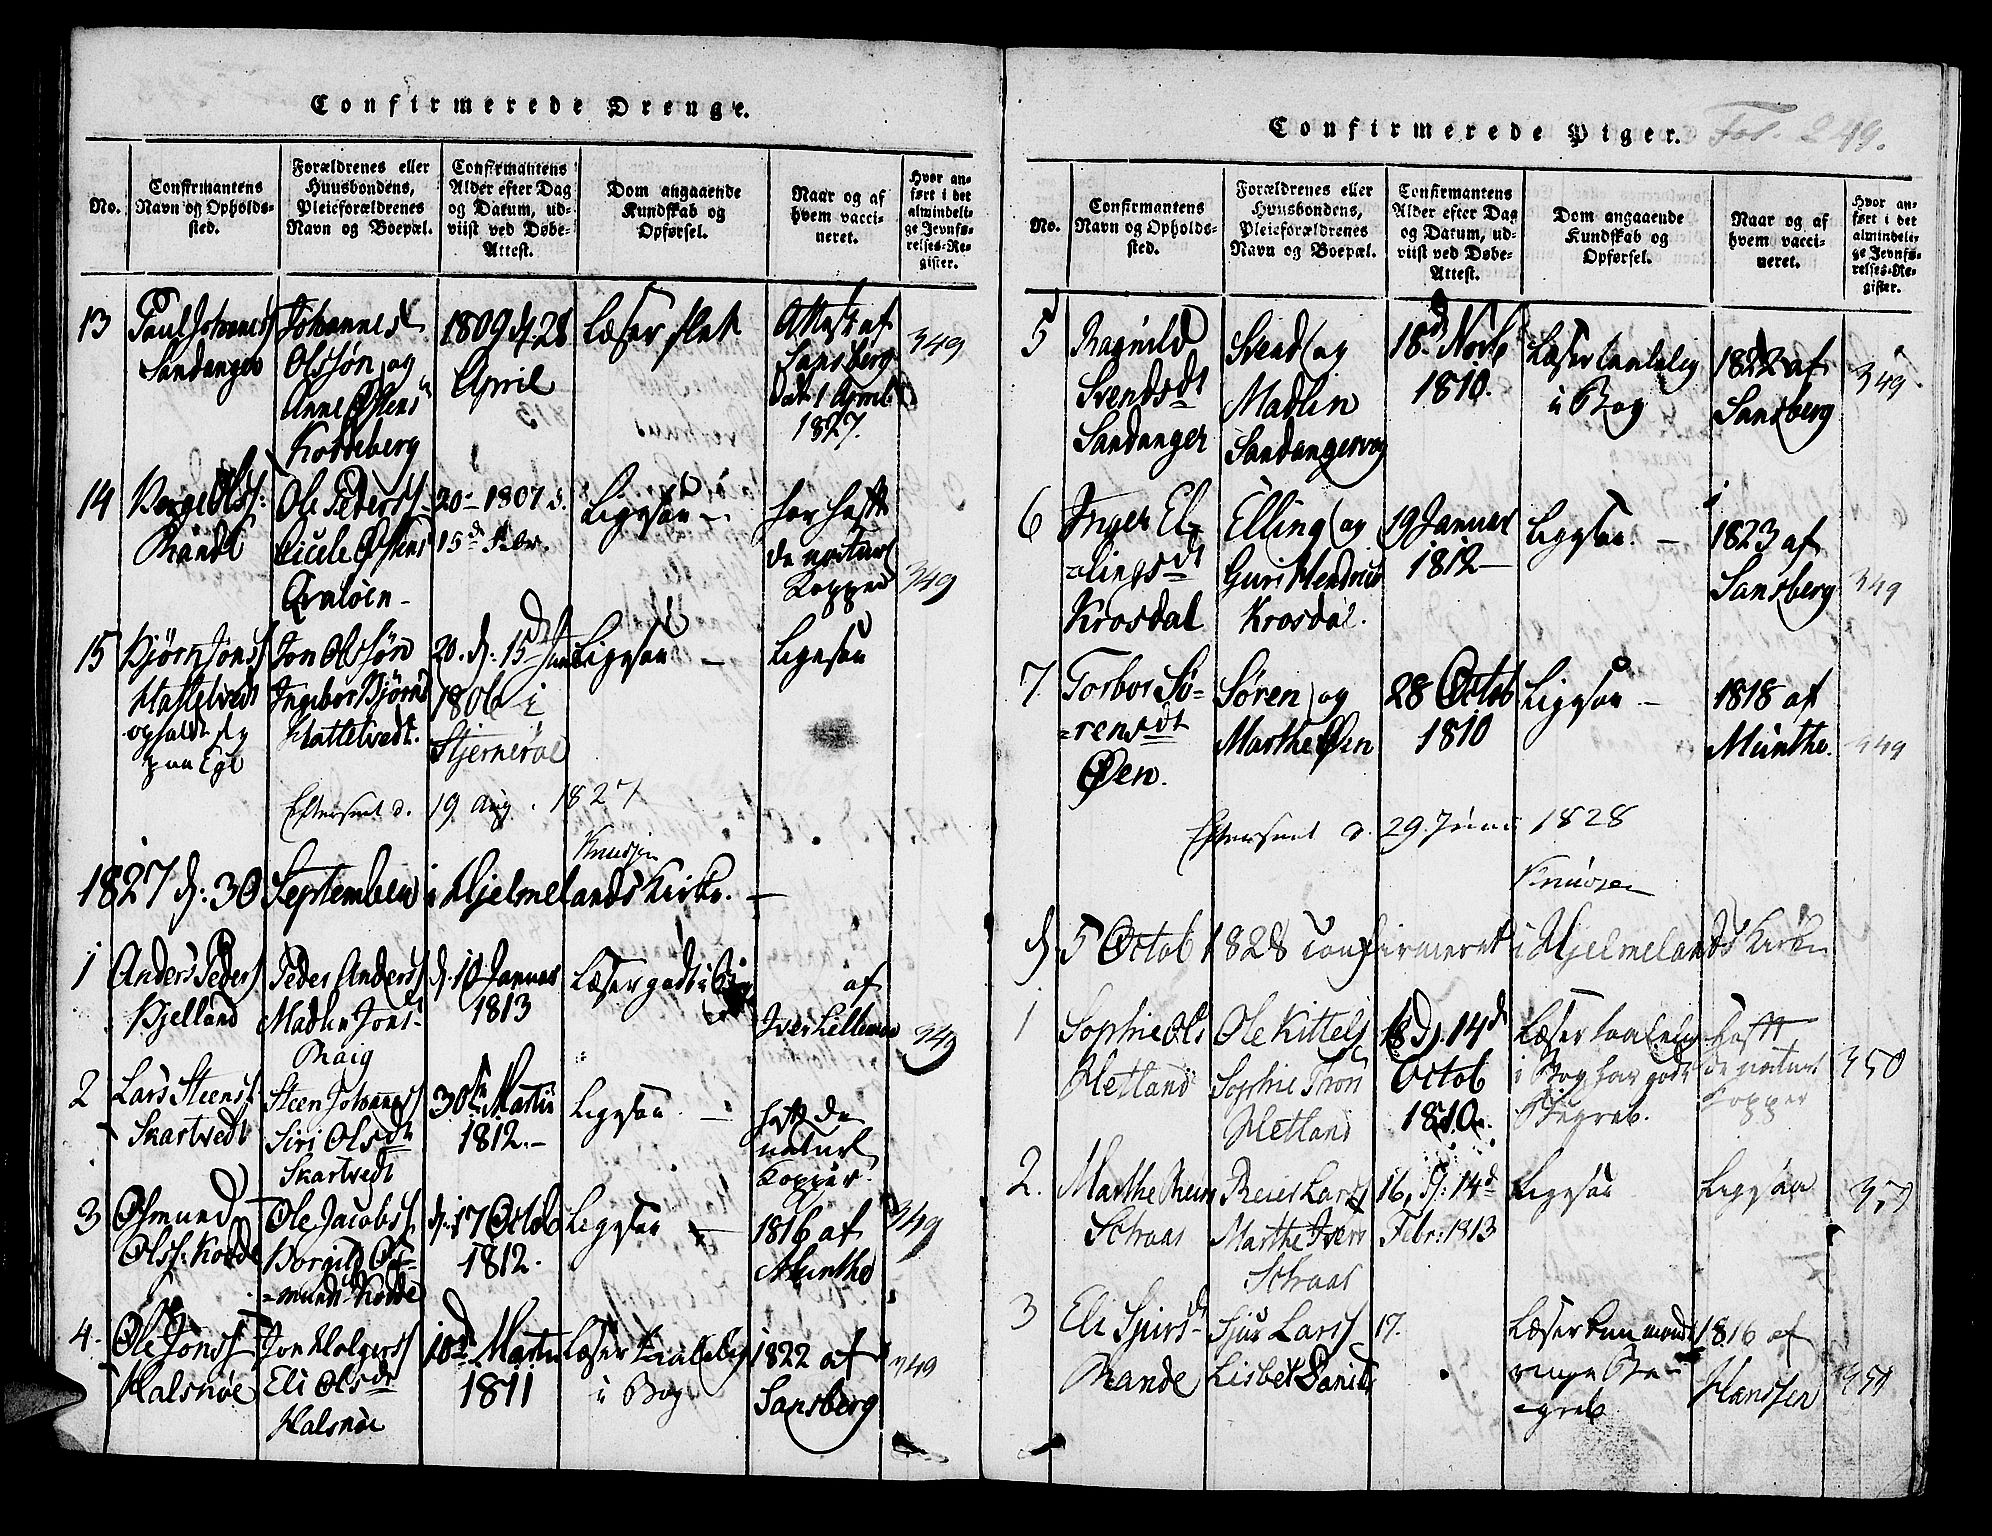 Confirmerede Drenge.
No.
Confirmantens
Navn og Opholds-
sted.
Forældrenes eller
Huusbondens,
Pleieforældrenes
Navn og Boepæl.
Confirmantens
Alder efter Dag
og Datum, ud-
viist ved Døbe-
Attest.
Dom angaaende
Kundskab og
Opførsel.
Naar og af
hvem vacci-
neret.
Hvor an-
ført i det
almindeli-
ge Jevnfø-
relses-Re-
gister.
13
Paul Johannes
Sandanger
Johannes
Olssøn og
Anne Østens
Kodeberg
1809 d. 28
April
Læser slet
Attest af
Sansberg
dat. 1 April
1827.
349
14
Børge Olss:
Brandt
Ole Peders
Cicele Østens
Qvaløen
20 - 1807 d.
15d Febr.
Ligesaa -
har haft
de naturl
Kopper
349
15
Bjørn Jons
Hattelvedt
opholdt sig
paa Egt
Jon Olssøn
Ingebor Bjørns
Hattelvedt.
20. d. 15d Juni
1806 i
Stjernerøe
Ligesaa -
Ligesaa
Efterseet d. 19 Aug. 1827
Knudsen
1827 d: 30 September i Hjelmelands Kirke. -
1
Anders Peders
Bjelland
Peder Anders
Madlin Jons-
Maig
d. 10 Januar
1813
Læser godt i Bog
af
Iver Lilleman
349
2
Lars Steens
Skartvedt
Steen Johannes
Siri Olsdt
Skartvedt
30te Martii
1812. -
Ligesaa -
haft de
naturl
Kopper
3
Osmund
Olss: Kodde
Ole Jacobs
Borgild Os-
-mund Kodde
d. 17 Octob
1812.
Ligesaa -
1816 af
Munthe
349
4.
Ole Jons
Halsnøe
Jon Holgers
Eli Olsdt
Halsnøe
10d Martii
1811
Læser taalelig
i Bog
1822 af
Sansberg
349
Confirmerede Piger.
Fol. 249.
No.
Confirmantens
Navn og Opholds-
sted.
Forældrenes eller
Huusbondens,
Pleieforældrenes
Navn og Boepæl.
Confirmantens
Alder efter Dag
og Datum, ud-
viist ved Døbe-
Attest.
Dom angaaende
Kundskab og
Opførsel.
Naar og af
hvem vacci-
neret.
Hvor an-
ført i det
almindeli-
ge Jevnfø-
relses-Re-
gister.
5
Ragnild
Svendsdt
Sandanger
Svend og
Madlin
Sandangervog
18d Novb
1810.
Læser taalelig
i Bog
1822 af
Sansberg
349
6
Inger El-
-lingsdt
Krosdal
Elling og
Guri Hendrics
Krosdal.
19 Januar
1812 -
Ligesaa. -
1823 af
Sansberg
349
7.
Torbor Sø-
-rensdt
Øen.
Søren og
Marthe Øen
28 Octob
1810
Ligesaa -
1818 af
Munthe.
349
Efterseet d. 29. Juni 1828
Knudsen
d 5 Octob 1828 confirmeret i Hjelmelands Kirke
1
Sophie Ols
Hetland
Ole Kittels
Sophie Trons
Hetland
18 d. 14d
Octob
1810.
Læser taalelig
i Bog har godt
Begreb.
haft
de naturl
Kopper
350
2.
Marthe Reiers
Schraas
Reier Lars
Marthe Ivers
Schraas
16, d: 14d
Febr: 1813
Ligesaa
Ligesaa
350
3
Eli Sjursdt
Rande
Sjur Lars
Lisbet Daniels
17.
Læser kun maade
ringe Be-
-greb
1816 af
Hanssen
350